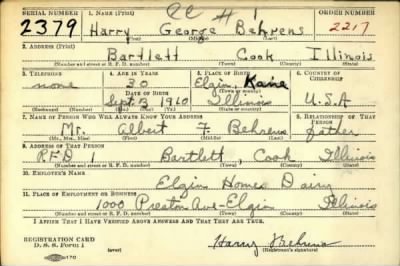 SERIAL NUMBER 1. NAME (Print) ORDER NUMBER
2379 Harry George Behrens 2217
(First) (Middle) (Last)
2. ADDRESS (Print)
Bartlett Cook Illinois
(Number and street or R. F. D. number) (Town) (County) (State)
3. TELEPHONE 4. AGE IN YEARS 5. PLACE OF BIRTH 6. COUNTRY OF CITIZENSHIP
none 30 Elgin, Kane
DATE OF BIRTH (Town or county)
Sept 3 1910 Illinois U.S.A
(Exchange) (Number) (Mo.) (Day) (Yr.) (State or country)
7. NAME OF PERSON WHO WILL ALWAYS KNOW YOUR ADDRESS 8. RELATIONSHIP OF THAT PERSON
Mr. Albert F. Behrens father
(Mr., Mrs., Miss) (First) (Middle) (Last)
9. ADDRESS OF THAT PERSON
RFD 1 Bartlett, Cook Illinois
(Number and street or R. F. D. number) (Town) (County) (State)
10. EMPLOYER'S NAME
Elgin Home Dairy
11. PLACE OF EMPLOYMENT OR BUSINESS
1000 Preston Ave-Elgin Illinois
(Number and street or R. F. D. number) (Town) (County) (State)
I AFFIRM THAT I HAVE VERIFIED ABOVE ANSWERS AND THAT THEY ARE TRUE.
REGISTRATION CARD
D. S. S. Form 1 Harry Behrens
(Registrant's signature)